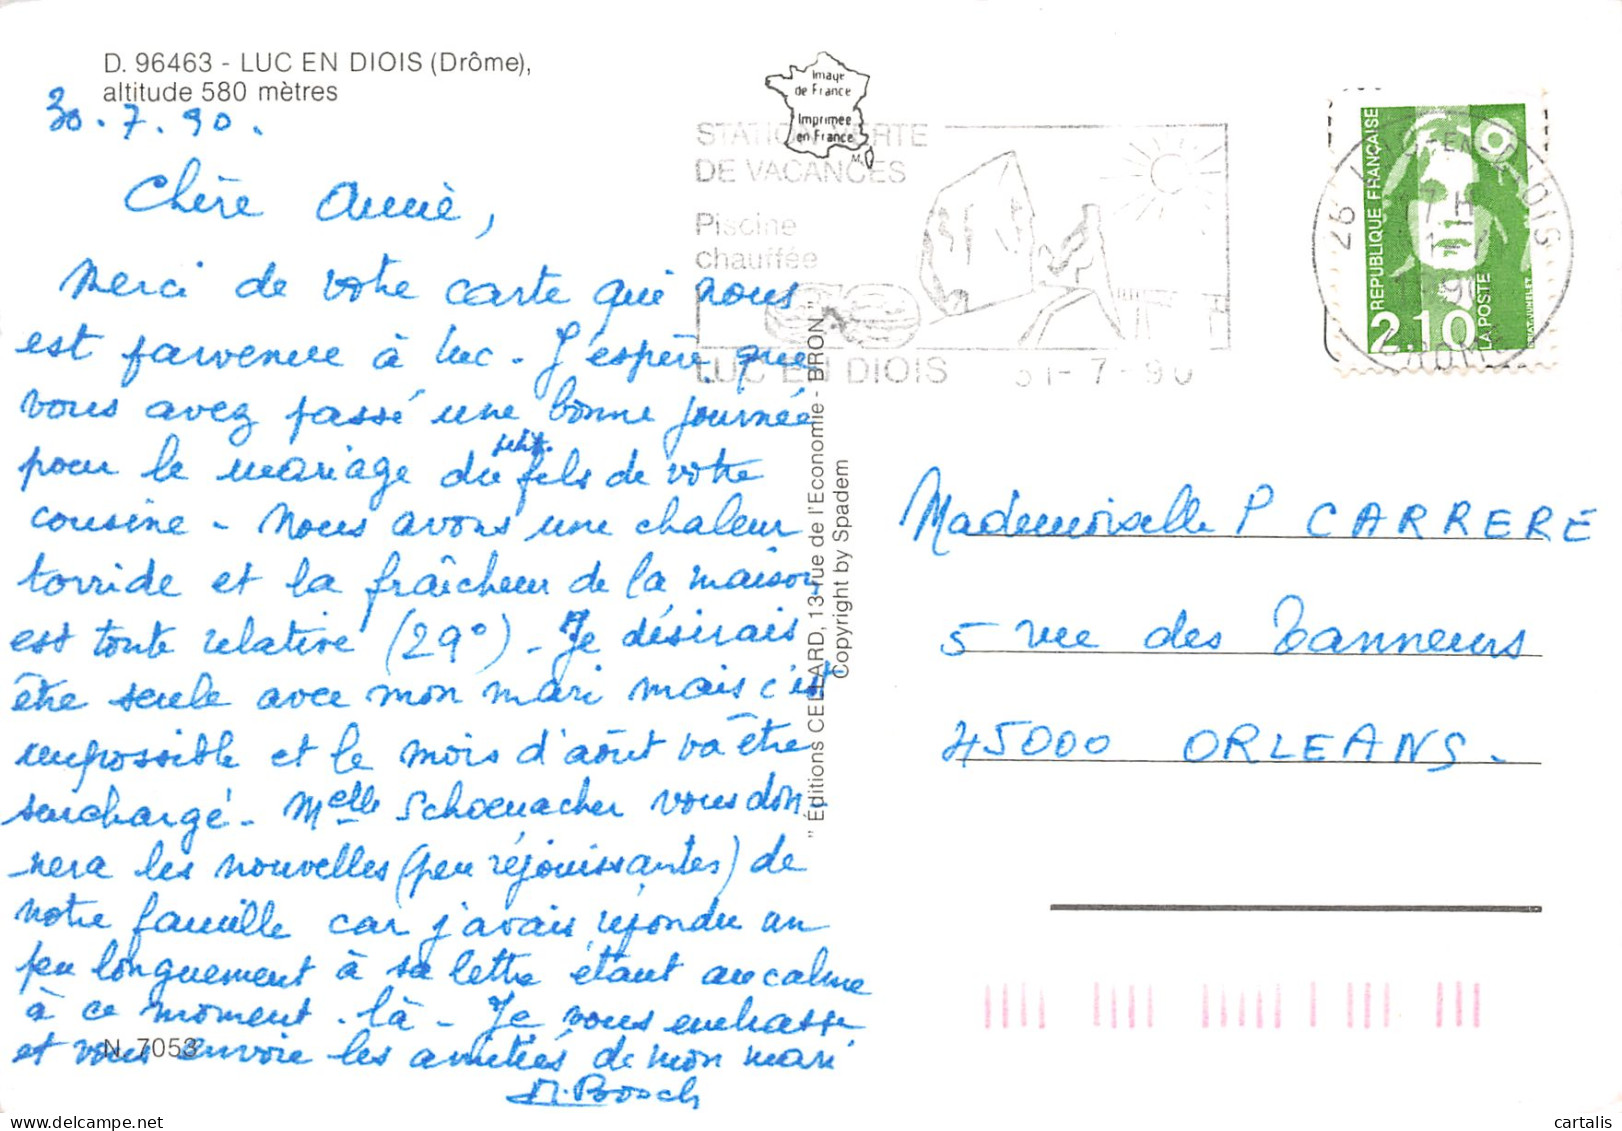 D. 96463 - LUC EN DIOIS (Drôme),
altitude 580 mètres
30.7.90.
Chère Annie,
Merci de votre carte qui nous
est parvenue à Luc - J'espère que
vous avez passé une bonne journée
pour le mariage du petit fils de votre
cousine - Nous avons une chaleur
torride et la fraîcheur de la maison
est toute relative (29°) - Je désirais
être seule avec mon mari mais c'est
impossible et le mois d'août va être
surchargé - Melle Schoenacher vous don-
nera les nouvelles (peu réjouissantes) de
notre famille car j'avais répondu un
peu longuement à sa lettre étant au calme
à ce moment-là - Je vous embrasse
et vous envoie les amitiés de mon mari
M. Bosch
N. 7053
Image
de France
Imprimée
en France
STATION VERTE
DE VACANCES
Piscine
chauffée
LUC EN DIOIS 31-7-90
" Éditions CELLARD, 13 rue de l'Economie - BRON "
Copyright by Spadem
RÉPUBLIQUE FRANÇAISE
2.10
LA POSTE
26 LUC-EN-DIOIS
DROME
Mademoiselle P CARRERE
5 rue des Tanneurs
45000 ORLEANS.
cartalis